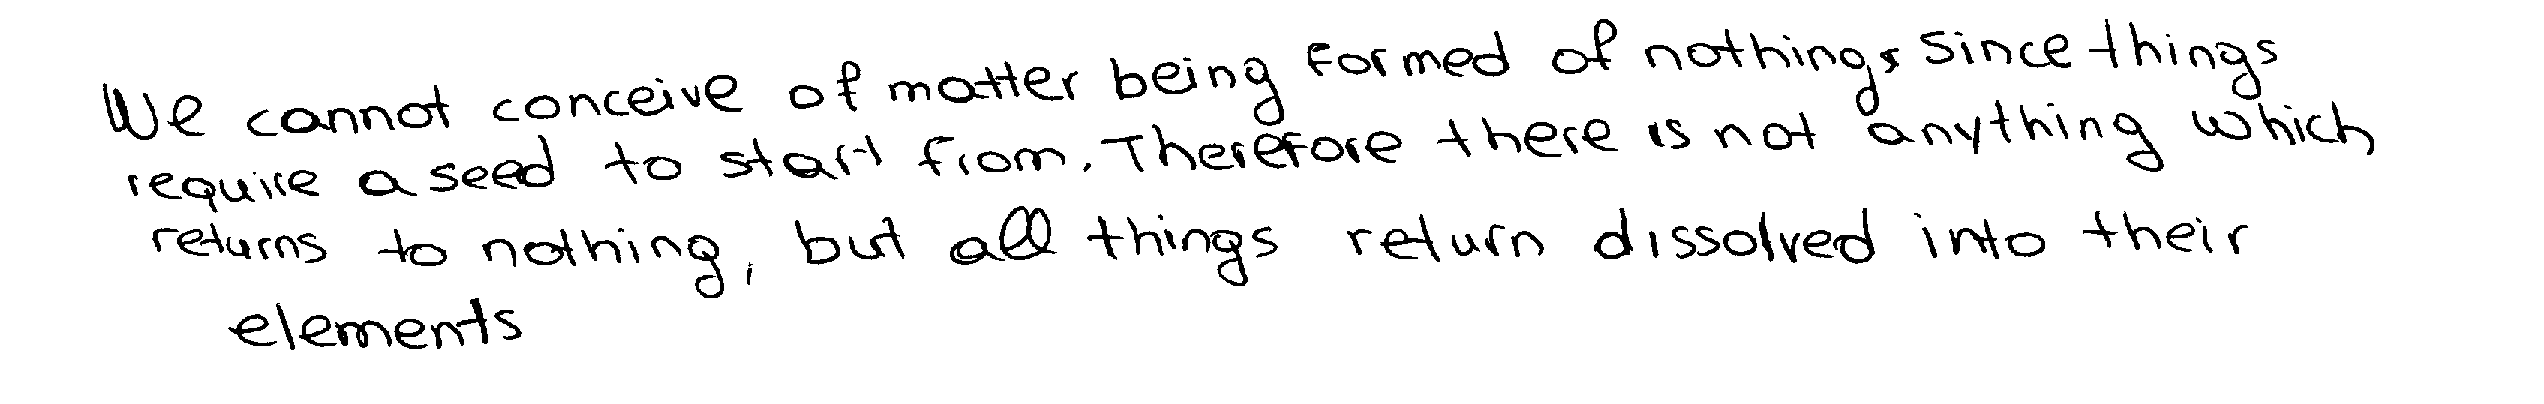 We cannot conceive of matter being formed of nothing, since things
require a seed to start from. Therefore there is not anything which
returns to nothing, but all things return dissolved into their
elements